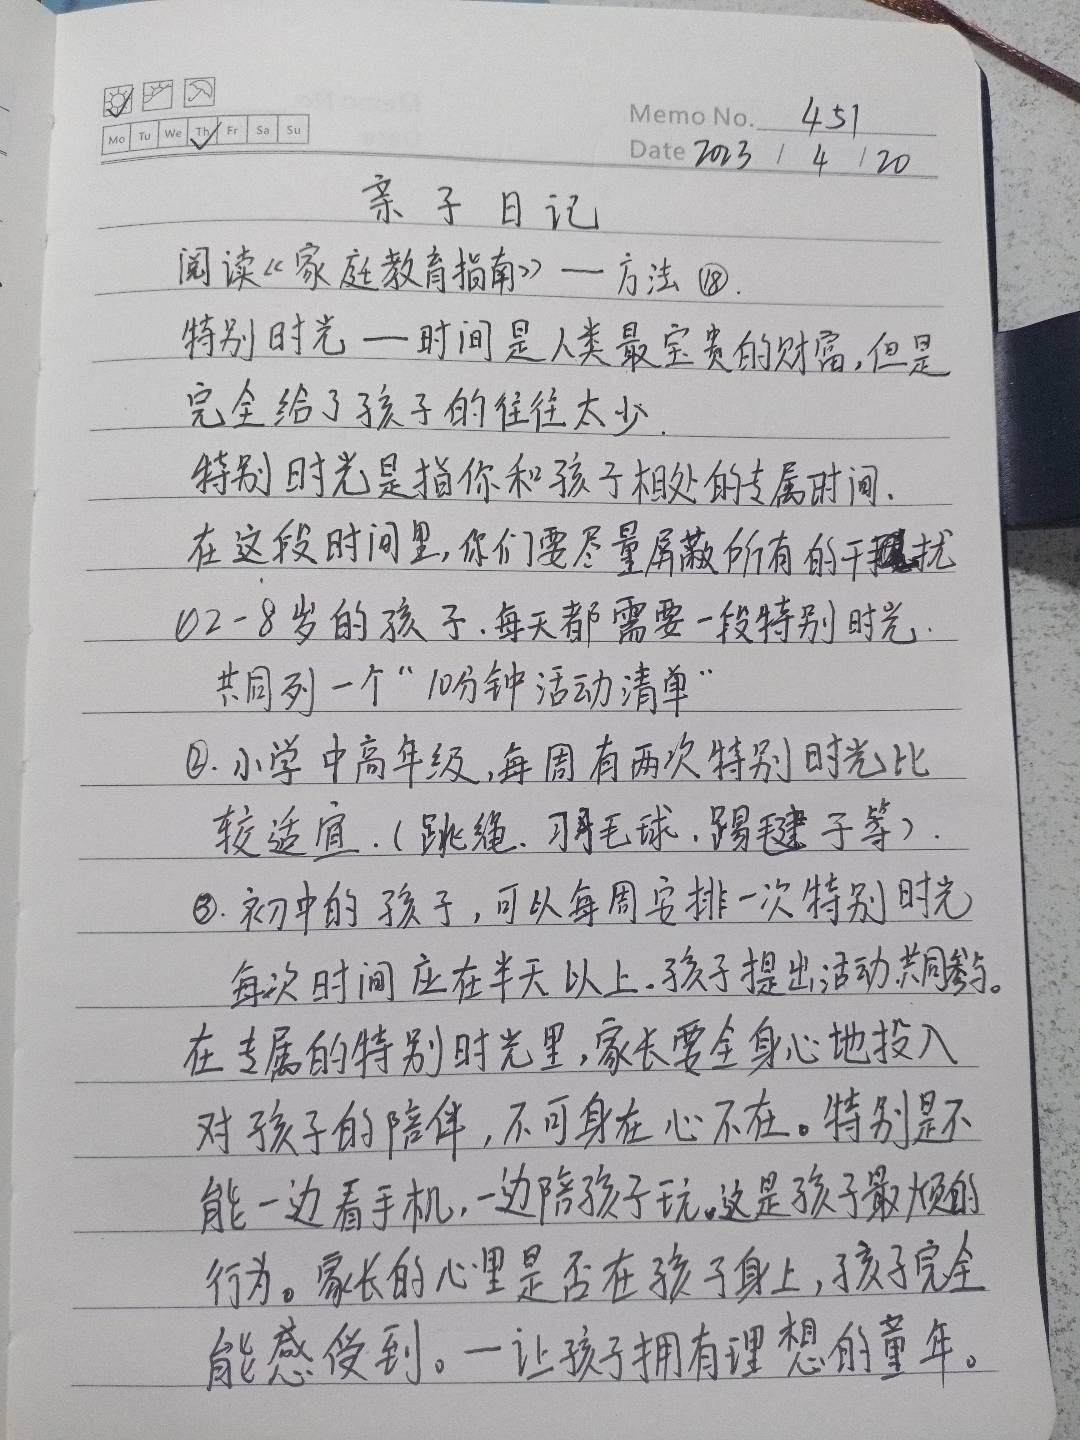 Mo Tu We Th Fr Sa Su
Memo No. 451
Date 2023 / 4 / 20
亲子日记
阅读《家庭教育指南》—方法⑱.
特别时光—时间是人类最宝贵的财富,但是
完全给了孩子的往往太少.
特别时光是指你和孩子相处的专属时间.
在这段时间里,你们要尽量屏蔽所有的干扰
①2-8岁的孩子.每天都需要一段特别时光.
共同列一个“10分钟活动清单”
②.小学中高年级,每周有两次特别时光比
较适宜.(跳绳.羽毛球.踢毽子等).
③.初中的孩子,可以每周安排一次特别时光
每次时间应在半天以上.孩子提出活动.共同参与。
在专属的特别时光里,家长要全身心地投入
对孩子的陪伴,不可身在心不在。特别是不
能一边看手机,一边陪孩子玩。这是孩子最烦的
行为。家长的心里是否在孩子身上,孩子完全
能感受到。—让孩子拥有理想的童年。